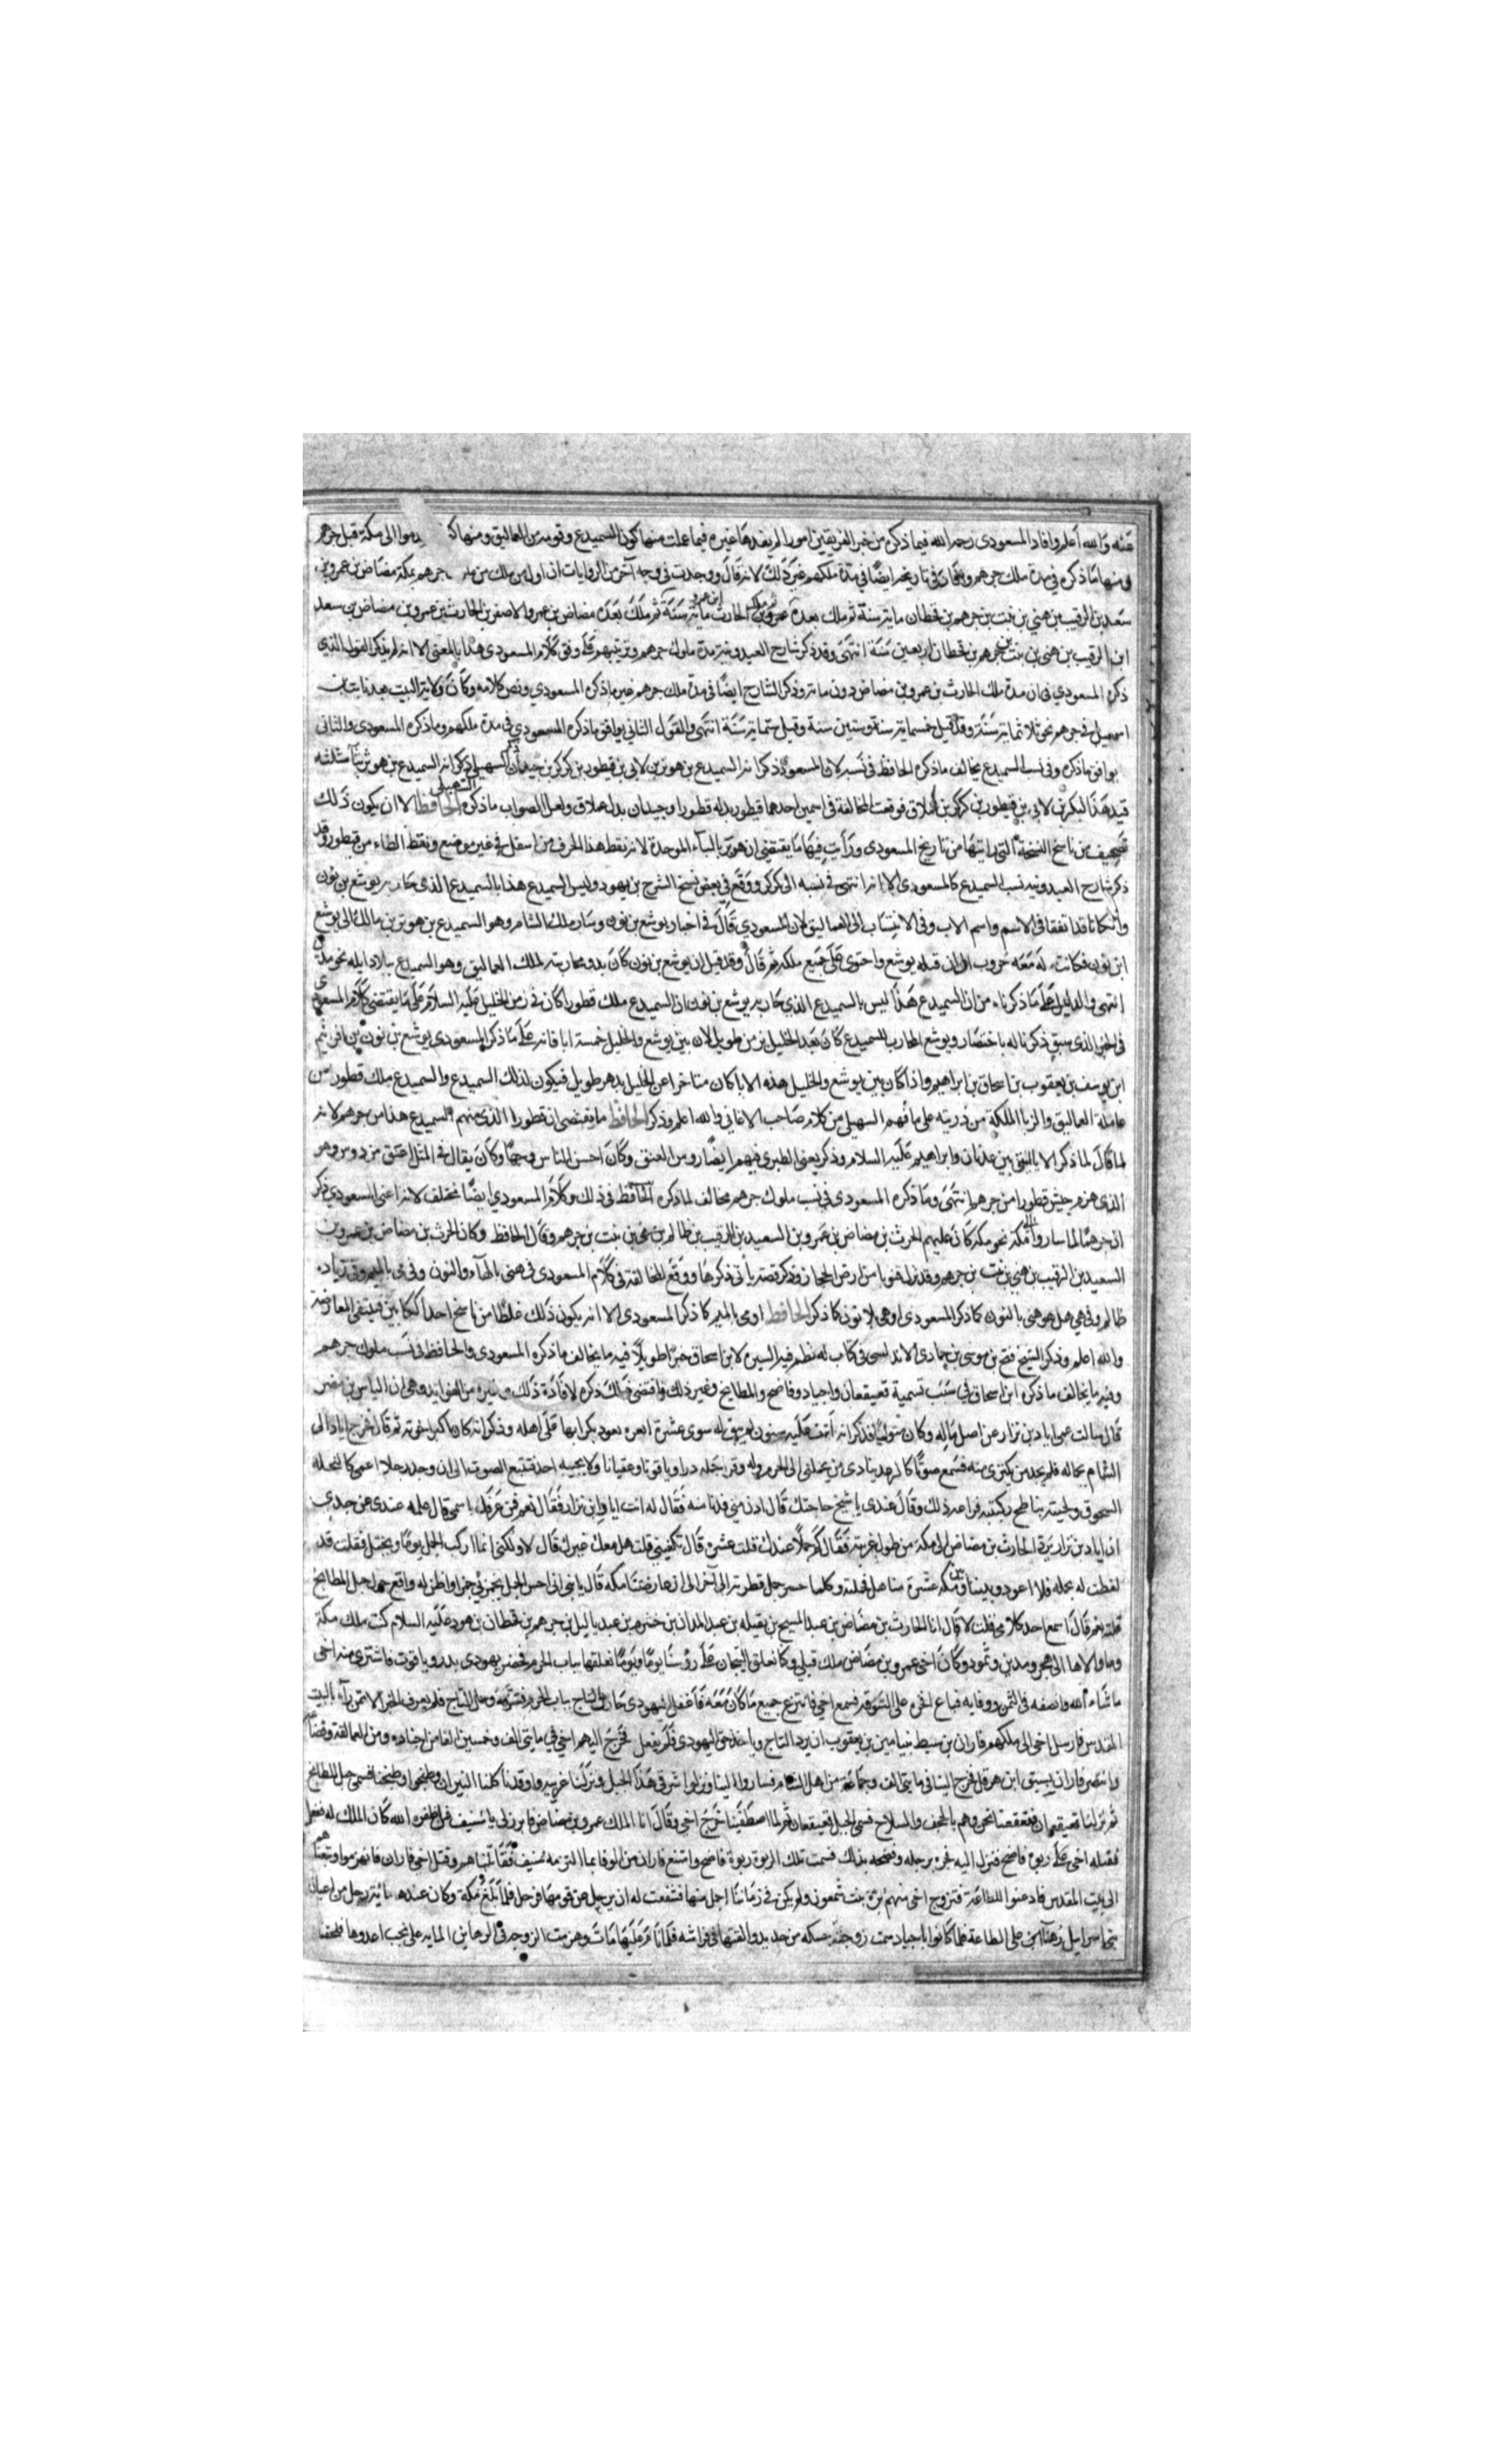 عنه والله أعلم وافاد المسعودى رحمه الله فيما ذكره من خبر الفريقين امورا لم يفدها غيره فيما علمت منها كون السميدع وقومه من العماليق ومنها الى مكة قبل جرهم
ومنها ما ذكره في مدة ملك جرهم في تاريخه ايضا في مدة ملكهم غير ذلك لانه قال ووجدت في وجه آخر من الروايات ان اول من ملك من جرهم بمكة مضاض بن عمرو بن
سعد بن الرقيب بن هني بن نبت بن جرهم بن قحطان ماية سنة ثم ملك بعده عمرو بن الحارث ماية سنة ثم ملك بعده مضاض بن عمرو الاصغر بن الحارث بن عمرو بن مضاض بن سعد
ابن الرقيب بن هنى بن نبت بن جرهم بن قحطان اربعين سنة انتهى وقد ذكر شارح العبدونية مدة ملوك جرهم وترتيبهم على وفق كلام المسعودى هذا بالمعنى الا انه لم يذكر القول الذي
ذكره المسعودي في ان مدة ملك الحارث بن عمرو بن مضاض دون ماية وذكر الشارح ايضا في مدة ملك جرهم غير ما ذكره المسعودي ونص كلامه وكان ولاية البيت بعد نابت بن
اسمعيل في جرهم نحو ثلاثماية سنة وقد قيل خمسماية سنة وستين سنة وقيل ستماية سنة انتهى والقول الثاني يوافق ما ذكره المسعودي في مدة ملكهم وما ذكره المسعودي والثاني
يوافق ما ذكره وفي نسب السميدع يخالف ما ذكره الحافظ في نسبه لان المسعودي ذكر انه السميدع بن هوبر بن لابي بن قيطور بن كركر بن حيدان السهيلي ذكر انه السميدع بن هوثر بثاء مثلثة
قيدها البكرى بن لاي بن قيطور بن كركر بن عملاق فوقعت المخالفة في اسمين احدهما قيطور بدله قطورا وحيدان بدل عملاق ولعل الصواب ما ذكره الحافظ الا ان يكون ذلك
تصحيف من ناسخ النسخة التي رايتها من تاريخ المسعودى ورأيت فيها ما يقتضى ان هوبر بالباء الموحدة لانه نقط هذا الحرف من اسفل في غير موضع ونقط الطاء من قيطور وقد
ذكر شارح العبدونيه نسب السميدع كالمسعودى الا انه انتهى في نسبه الى كركر ووقع في بعض نسخ الشرح بن يهود وليس السميدع هذا بالسميدع الذى حاربه يوشع بن نون
وان كانا قد اتفقا في الاسم واسم الاب وفى الانتساب الى العماليق لان المسعودي قال في اخبار يوشع بن نون وسار ملك الشام وهو السميدع بن هوبر بن مالك الى يوشع
ابن نون فكانت له معه حروب الى ان قتله يوشع واحتوى على جميع ملكه ثم قال وقد قيل ان يوشع بن نون كان بدو محاربته لملك العماليق وهو السميدع ببلاد ايله نحو مدين
انتهى والدليل على ما ذكرناه من ان السميدع هذا ليس بالسميدع الذي حاربه يوشع بن نون ان السميدع ملك قطورا كان في زمن الخليل عليه السلام على ما يقتضى كلام المسعودى
في الخبر الذى سبق ذكرنا له باختصار ويوشع المحارب للسميدع كان بعد الخليل بزمن طويل لان بين يوشع والخليل خمسة ابا فانه على ما ذكر المسعودى يوشع بن نون بن افراثيم
ابن يوسف بن يعقوب بن اسحاق بن ابراهيم واذا كان بين يوشع والخليل هذه الابا كان متاخرا عن الخليل بدهر طويل فيكون لذلك السميدع والسميدع ملك قطورا من
عاملة العماليق والزبا الملكة من ذريته على ما فهم السهيلى من كلام صاحب الاغاني والله اعلم وذكر الحافظ ما يقتضى ان قطورا الذى منهم السميدع هذا من جرهم لانه
لما قال لما ذكر الابا التى بين عدنان وابراهيم عليه السلام وذكر يعنى الطبرى فيهم ايضا روس العنق وكان احسن الناس وجها وكان يقال في المثل اعتق من دوس وهو
الذى هزم جيش قطورا من جرهم انتهى وما ذكره المسعودى في نسب ملوك جرهم مخالف لما ذكره الحافظ في ذلك وكلام المسعودي ايضا مختلف لانه اعنى المسعودي ذكر
ان جرهما لما ساروا نحو مكة كان عليهم الحرث بن مضاض بن عمرو بن السعيد بن الرقيب بن ظالم بن هي بن نبت بن جرهم وقال الحافظ وكان الحرث بن مضاض بن عمرو بن
السعيد بن الرقيب بن هني بن نبت بن جرهم وقد نزل هنوبا من ارض الحجاز وذكر قصة يأتى ذكرها ووقع المخالفة في كلام المسعودى في هنى بالهاء والنون وفي مي بالميم وفي زيادة
ظالم وفي هي هل هو هنى بالنون كما ذكر المسعودى او هي بلا نون كما ذكر الحافظ او مى بالميم كما ذكر المسعودى الا انه يكون ذلك غلطا من ناسخ احد الكتابين فينتفى المعارضة
والله اعلم وذكر الشيخ فتح بن موسى بن حمادى الاندلسى في كتاب له نظم فيه السيره لابن اسحاق خبرا طويلا فيه ما يخالف ما ذكره المسعودى والحافظ في نسب ملوك جرهم
وفيه ما يخالف ما ذكره ابن اسحاق في سبب تسمية قعيقعان واجياد وفاضح والمطابخ وغير ذلك واقتضى ذلك ذكره لافادة ذلك وغيره من الفوايد وهى ان الياس بن مضر
قال سالت عمى اياد بن نزار عن اصل ماله وكان متوليا فذكر انه اتت عليه سنون لم يبق له سوى عشرة ابعره يعود بكرايها على اهله وذكر انه كان اكبر اخوته ثم قال خرج اياد الى
الشام بجماله فلم يجد من يكترى منه فسمع صوتا كالرعد ينادى من يحملنى الى الحرم وله وقر جمله درا وياقوتا وعقيانا ولا يجيبه احد فتتبع الصوت الى ان وجد رجلا اعمى كالنخله
السحوق ولحيته تناطح ركبتيه فراعه ذلك وقال عندى يا شيخ حاجتك قال ادن مني فدنا منه فقال له انت اياد ابن نزار فقال نعم فمن عرفك باسمى قال علمه عندى عن جدى
ان اياد بن نزار يرد الحارث بن مضاض الى مكة من طول غربته فقال كم جملا عندك قلت عشرة قال تكفيني قلت هل معك غيرك قال لا ولكنى انما اركب الجمل يوما ويحبل فقلت قد
لفظت له بجمله فلا اعود وبيننا وبين مكه عشرة مناحل فحملته وكلما حسر جمل قطرته الى آخر الى ان عارضنا مكة قال يا بنى انى احس الجبل واظن له واقع حمى اجبل المطابخ
قلت نعم قال اسمع احد كلامى قلت لا قال انا الحارث بن مضاض بن عبد المسيح بن نفيله بن عبد المدان بن خشرم بن عبد ياليل بن جرهم بن قحطان بن هود عليه السلام كنت ملك مكة
وما والاها الى هجر ومدين وثمود وكان اخى عمرو بن مضاض ملك قبلي وكنا نعلق التيجان على رؤسنا يوما ويوما نعلقها بباب الحرم فحضر يهودى بدر وياقوت فاشترى منه اخى
ما شاء الله وانصفه في الثمن ووفاه فباع اخره على السوقه فسمع اخي فانتزع جميع ما كان معه فاغفل اليهودى حارس التاج بباب الحرم فقتله وحمل التاج فلم يعرف الخبر الا من رآه بالبيت
المقدس فارسل اخى الى ملكهم فاران بن سبط بنيامين بن يعقوب ان يرد التاج وياخذ حق اليهودى فلم يفعل فخرج اليهم اخي في مايتى الف وخمسين الفا من اجناده ومن العمالقة وقضاعة
وانتصر فاران ابن هرقل فخرج الينا في مايتى الف وجماعة من اهل الشام فساروا الينا ونزلوا شرقى هذا الجبل ونزلنا غربيه واوقدنا كلنا النيران وطبخوا وطبخنا فسمى جبل المطابخ
ثم نزلنا قعيقعان فتقعقعنا نحن وهم بالحجف والسلاح فسمى الجبل قعيقعان ثم لما اصطفينا خرج اخى وقال انا الملك عمرو بن مضاض فابرز لى يا سنيف فمن اظفره الله كان الملك له ففعل
فقتله اخى على ربوة فاضح فنزل اليه فجره برجله وفضحه بذلك فسمت تلك الربوة ربوة فاضح وامتنع فاران من الوفا بما التزمه سنيف فقاتلناهم وقتل اخى فاران فانهزموا وتبعنا
الى بيت المقدس فادعنوا للطاعة فتزوج اخى منهم برة بنت شمعون ولم يكن في زماننا اجل منها فشفعت له ان يرحل عن قومها فرحل فلما بلغ مكة وكان عنده ماية رجل من اعيان
بنى اسرايل رهنا على الطاعة فلما كانوا باجياد سمت زوجته حسكه من حديد والقتها في فراشه فلما نام عليها مات وهربت الزوجه في الرهاين المايه على نجب اعدوها فلحقنا